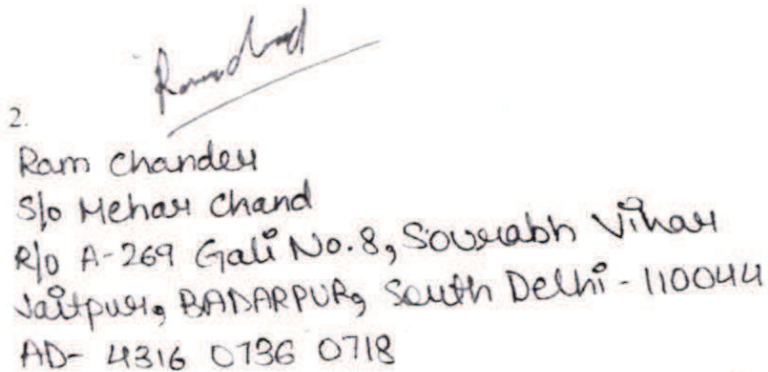 2.
Ram Chander
S/o Mehar Chand
R/o A-269 Gali No. 8, Sourabh Vihar
Jaitpur, BADARPUR, South Delhi - 110044
AD- 4316 0736 0718